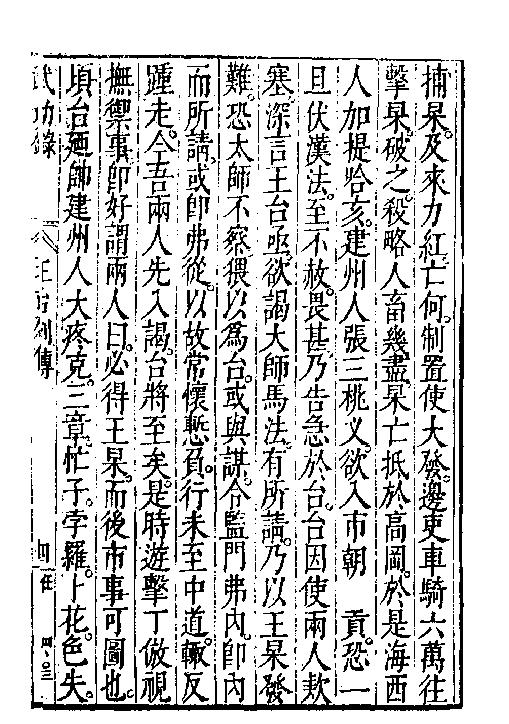 捕杲。及來力紅亡何。制置使大發邊吏車騎六萬往
擊杲。破之。殺略人畜幾盡。杲亡抵於高岡。於是海西
人加提哈亥。建州人張三桃义。欲入市朝　貢。恐一
旦伏漢法。至不赦。畏甚。乃告急於台。台因使兩人欵
塞。深言王台亟欲謁大師馬法。有所請。乃以王杲發
難。恐太師不察。猥以爲台。或與謀。令監門弗內。卽內
而所請。或卽弗從。以故常懷慙負。行未至中道。輙反
踵走。今吾兩人先入謁。台將至矣。是時遊擊丁倣視
撫禦事。卽好謂兩人曰。必得王杲。而後市事可圖也。
頃台廼帥建州人大疼克。三章。忙子。孛羅。卜花。色失。
武功錄
王台列傳